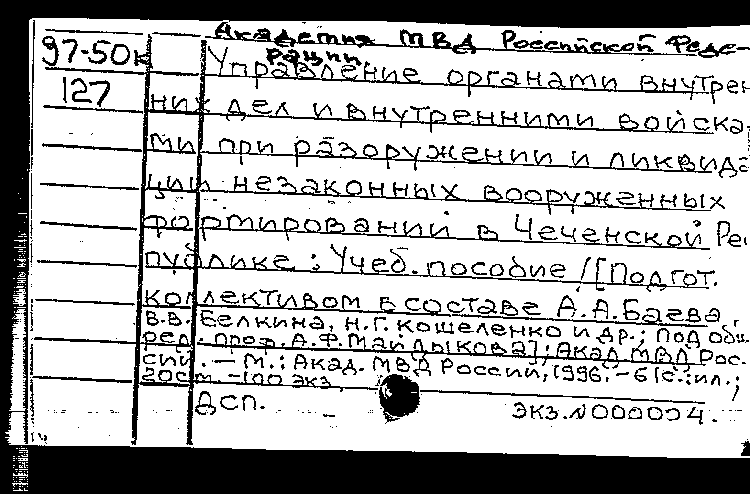 Академия МВД Российской Феде-
рации
97-50к
127
Управление органами внутрен
них дел и внутренними войска
ми при разоружении и ликвида
ции незаконных вооруженных
формирований в Чеченской Ре
публике : Учеб. пособие / [Подгот.
коллективом в составе А.А.Баева,
В.В. Белкина, Н.Г. Кошеленко и др.; под общ.
ред. проф. А.Ф. Майдыкова]; Акад. МВД Рос-
сии. — М.: Акад. МВД России, 1996. - 61с.: ил.;
20см. - 100 экз.
ДСП.
экз. N000004.